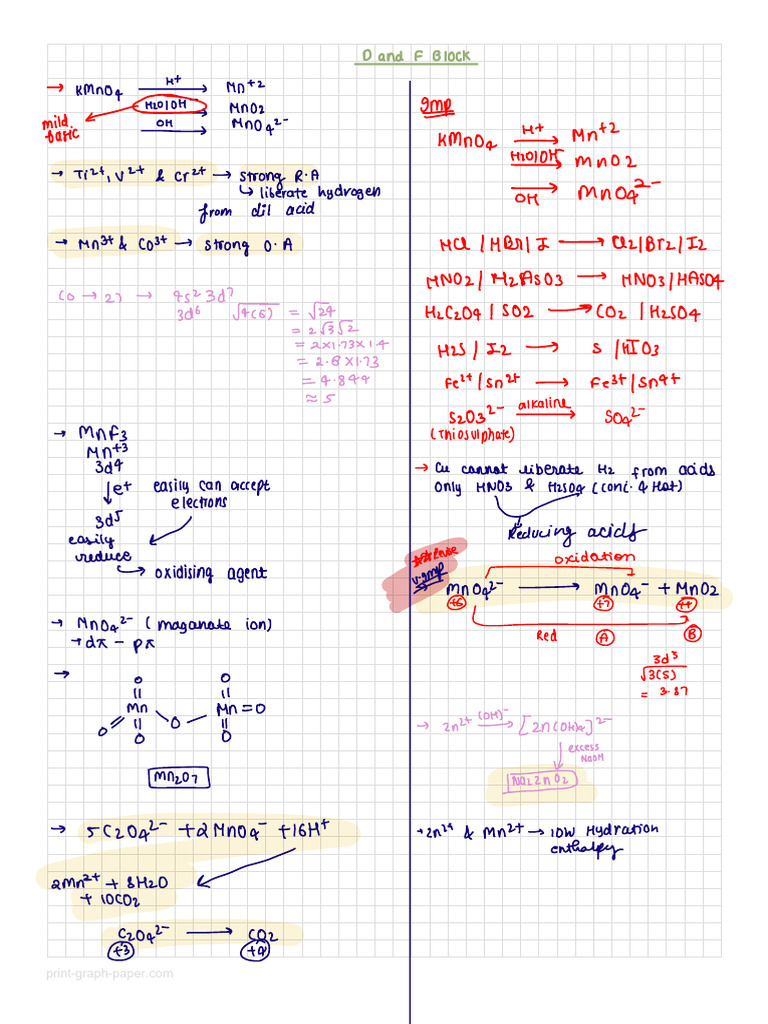 D and F Block
→ KMnO4 —H+→ Mn+2
—H2O|OH→ MnO2
—OH→ MnO4 2-
mild basic
→ Ti2+, V2+ & Cr2+ → strong R.A
↳ liberate hydrogen
from dil acid
→ Mn3+ & CO3+ → strong O.A
CO → 27 → 4s2 3d7
3d6 √4(6) = √24
= 2√3√2
= 2×1.73×1.4
= 2.8×1.73
= 4.844
≈ 5
→ MnF3
Mn+3
3d4
↓e+ easily can accept
electrons
3d5
easily
reduce
→ oxidising agent
→ MnO4 2- (maganate ion)
→ dπ - pπ
→ O O
Mn O Mn=O
O O O
Mn2O7
→ 5C2O4 2- + 2MnO4 - + 16H+
2Mn2+ + 8H2O
+ 10CO2
C2O4 2- → CO2
+3 +4
Imp
KMnO4 —H+→ Mn+2
—H2O|OH→ MnO2
—OH→ MnO4 2-
HCl | HBr | I → Cl2|Br2|I2
HNO2 | H2ASO3 → HNO3|HASO4
H2C2O4 | SO2 → CO2 | H2SO4
H2S | I2 → S | HIO3
Fe2+ | Sn2+ → Fe3+|Sn4+
S2O3 2- —alkaline→ SO4 2-
(Thiosulphate)
→ Cu cannot liberate H2 from acids
only HNO3 & H2SO4 (conc. & Hot)
Reducing acids
v.gmp
oxidation
→ MnO4 2- → MnO4 - + MnO2
+6 +7 +4
Red A B
3d3
√3(5)
= 3.87
→ Zn2+ —(OH)-→ [Zn(OH)4]2-
↓ excess
NaOH
Na2ZnO2
→ Zn2+ & Mn2+ → low Hydration
enthalpy
print-graph-paper.com